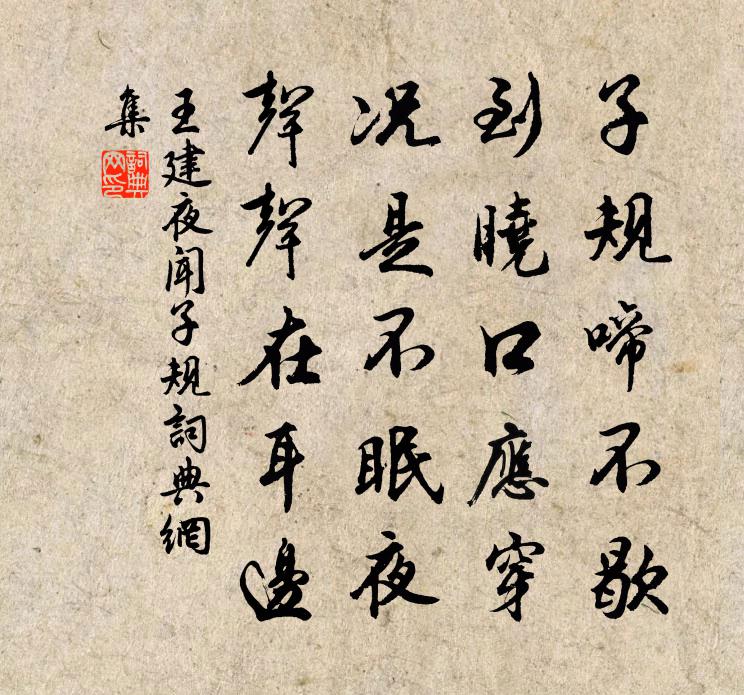 子規啼不歇
到曉口應穿
況是不眠夜
聲聲在耳邊
王建夜聞子規詞典網
集
詞典網印